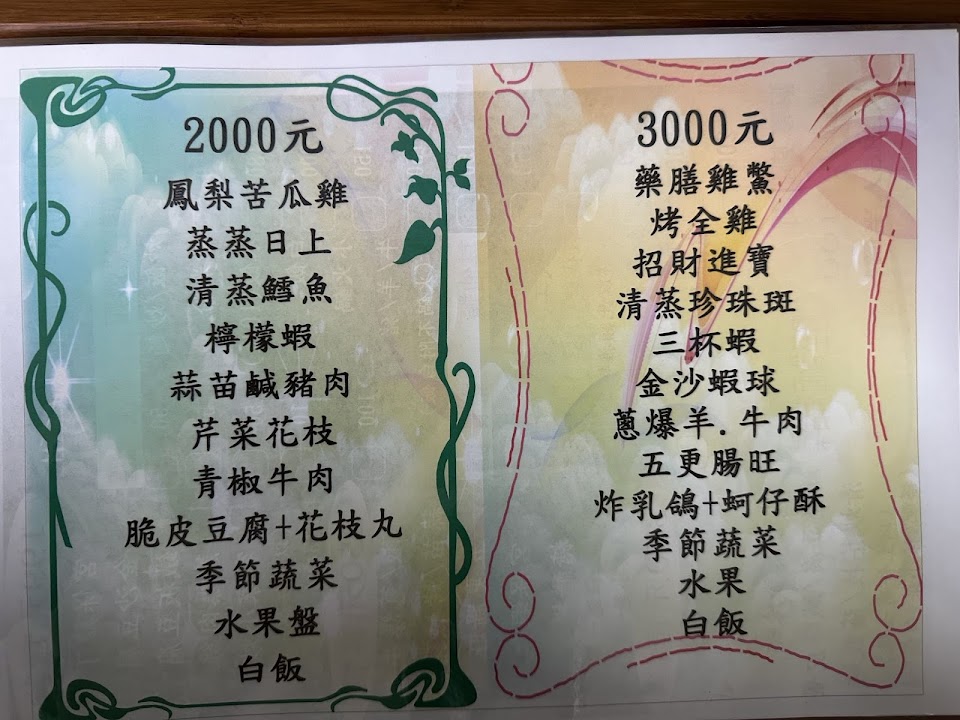 2000元
鳳梨苦瓜雞
蒸蒸日上
清蒸鱈魚
檸檬蝦
蒜苗鹹豬肉
芹菜花枝
青椒牛肉
脆皮豆腐+花枝丸
季節蔬菜
水果盤
白飯
3000元
藥膳雞鱉
烤全雞
招財進寶
清蒸珍珠斑
三杯蝦
金沙蝦球
蔥爆羊.牛肉
五更腸旺
炸乳鴿+蚵仔酥
季節蔬菜
水果
白飯